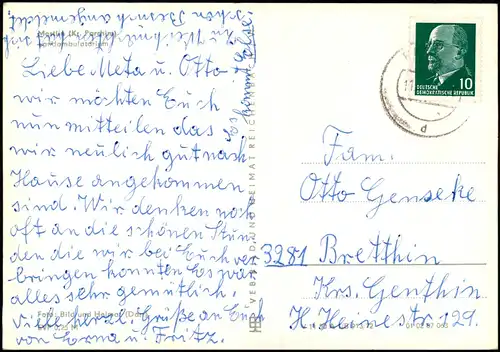 schon Besuch angemeldet.
Liebe Meta u. Otto
wir möchten Euch
nun mitteilen das
wir neulich gut nach
Hause angekommen
sind. Wir denken noch
oft an die schönen Stun
den die wir bei Euch ver
bringen konnten Es war
alles sehr gemütlich.
Viele herzl. Grüße an Euch
von Erna u. Fritz.
Foto: Bild und Heimat
VEB BILD UND HEIMAT REICHENBACH
DEUTSCHE
DEMOKRATISCHE REPUBLIK
10
d
Fam.
Otto Genseke
3281 Bretthin
Krs. Genthin
H. Heinestr 129.